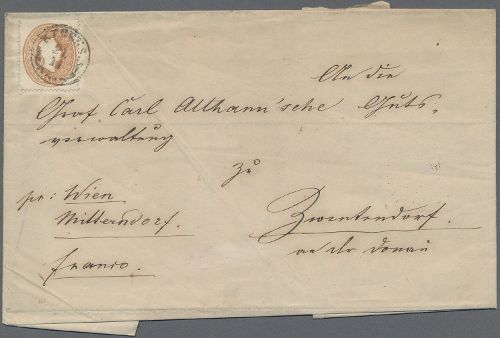 An die
Graf Carl Althann'sche Guts-
verwaltung
zu
pr: Wien
Mitterndorf.
franco.
Zwentendorf.
an der Donau